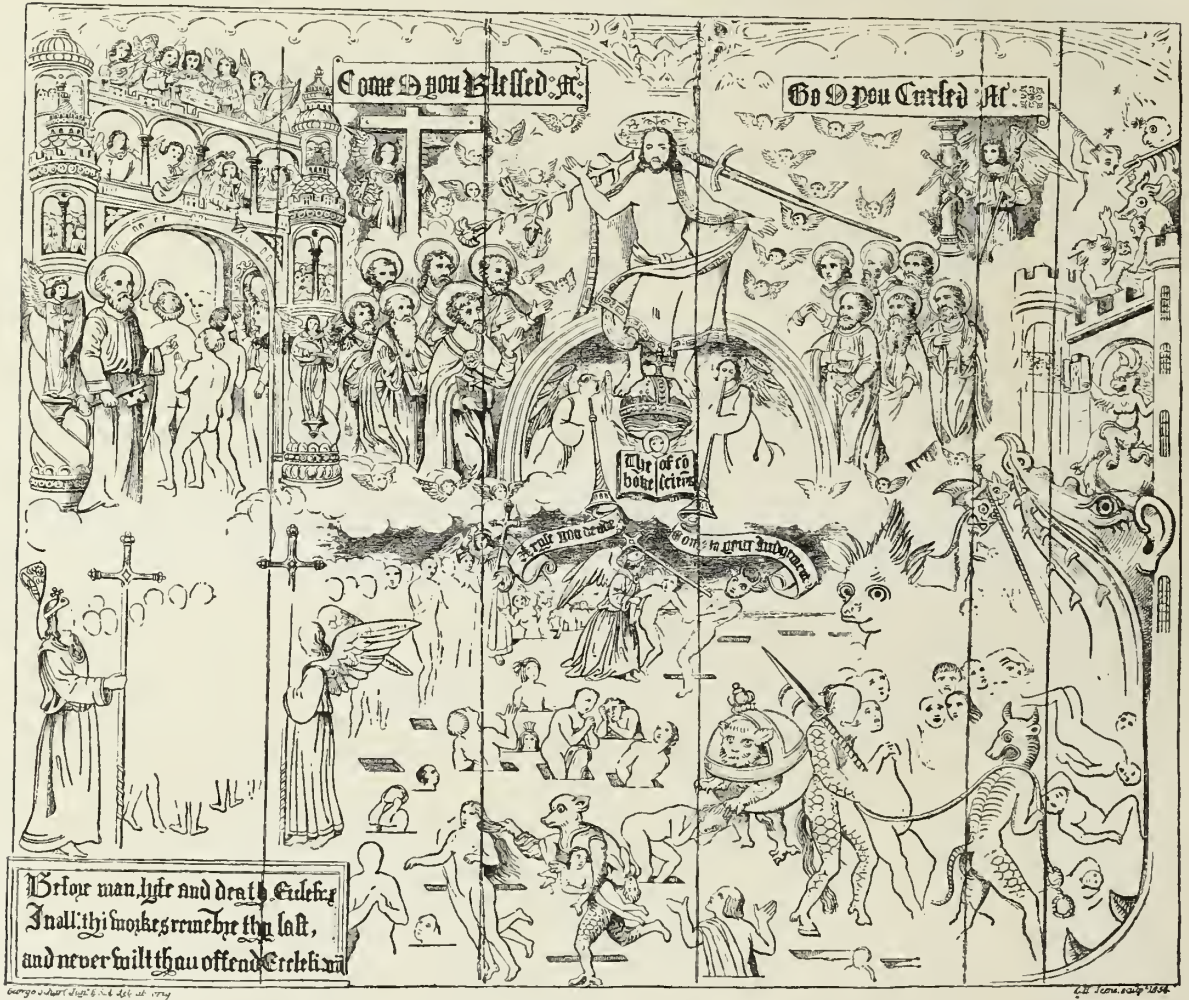 Come you Blessed
Go you Cursed
The of co
boke sciens
Aryse you deade
Come to your Judgement
Before man, lyfe and death. Eccles:
In all: thi workes remēbre thy last,
and never wilt thou offend Eccles: